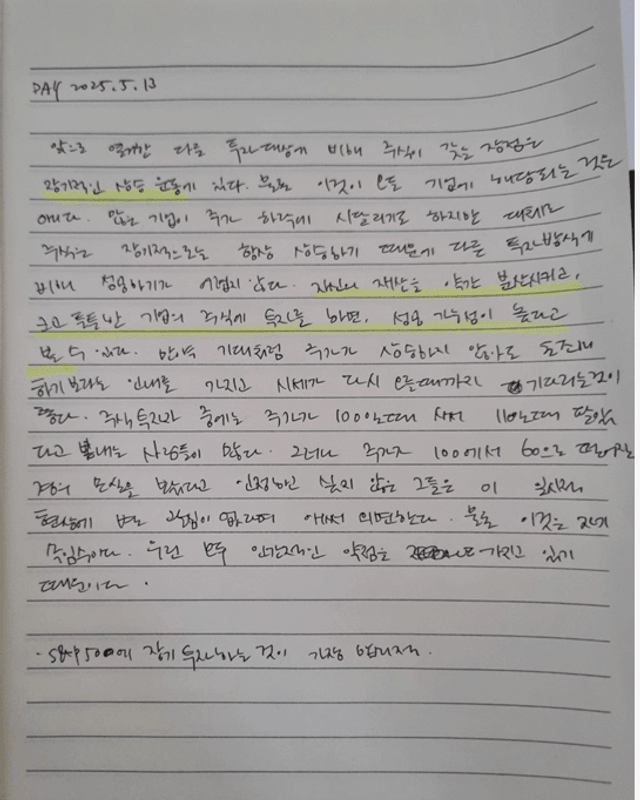 DAY 2025.5.13
앞으로 열거한 다른 투자대상에 비해 주식이 갖는 장점은
장기적인 상승 운동에 있다. 물론 이것이 모든 기업에 해당되는 것은
아니다. 많은 기업이 주가 하락에 시달리기도 하지만 대체로
주식은 장기적으로는 항상 상승하기 때문에 다른 투자방식에
비해 성공하기가 어렵지 않다. 자신의 재산을 약간 분산시키고,
크고 튼튼한 기업의 주식에 투자를 하면, 성공 가능성이 높다고
볼 수 있다. 만약 기대처럼 주가가 상승하지 않아도 초조해
하기보다는 인내를 가지고 시세가 다시 오를때까지 기다리는것이
좋다. 주식투자자 중에는 주가가 100일때 사서 110일때 팔았
다고 뽐내는 사람들이 많다. 그러나 주가가 100에서 60으로 떨어진
경우 손실을 봤다고 인정하고 싶지 않은 그들은 이 일시적
현상에 별로 관심이 없다며 애써 외면한다. 물론 이것은 자기
속임수이다. 우린 모두 인간적인 약점을 가지고 있기
때문이다.
· S&P500에 장기 투자하는 것이 가장 합리적.